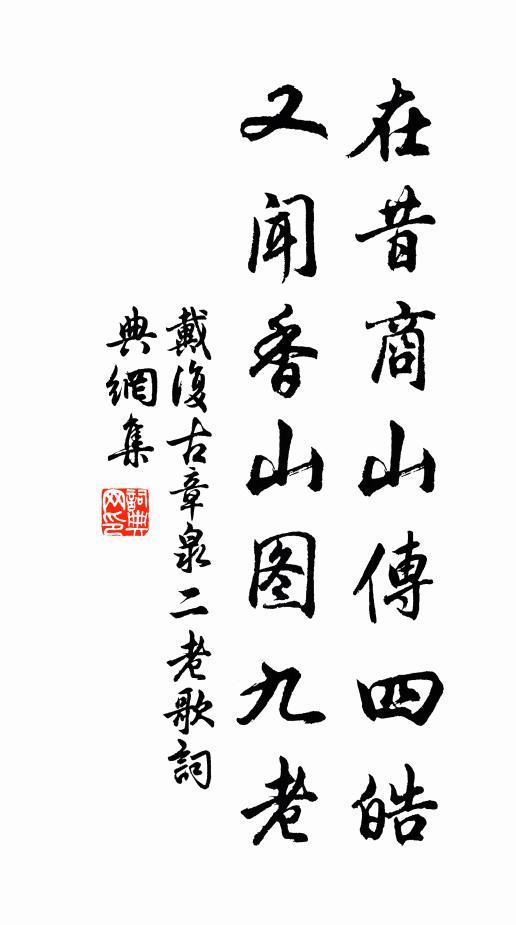 在昔商山傳四皓
又聞香山图九老
戴復古章泉二老歌詞
典網集
詞典
网印